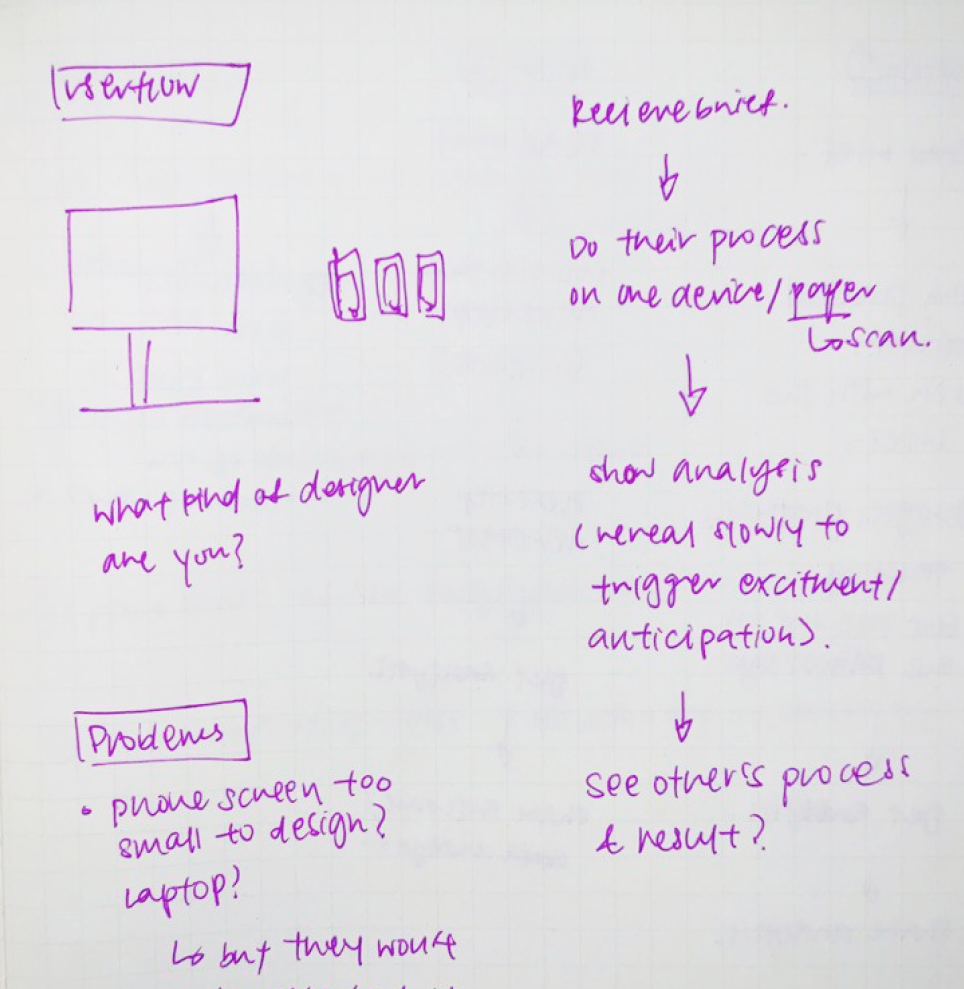 userflow
what kind of designer
are you?
Problems
• phone screen too
small to design?
Laptop?
↳ but they would
Recieve brief.
↓
Do their process
on one device/paper
↳ scan.
↓
show analysis
(reveal slowly to
trigger excitment/
anticipation).
↓
see other's process
& result?